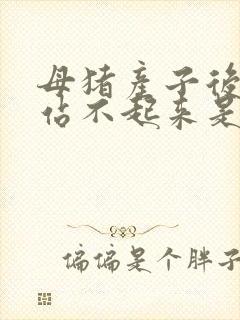 母猪產子後
站不起来是
偏偏是个胖子